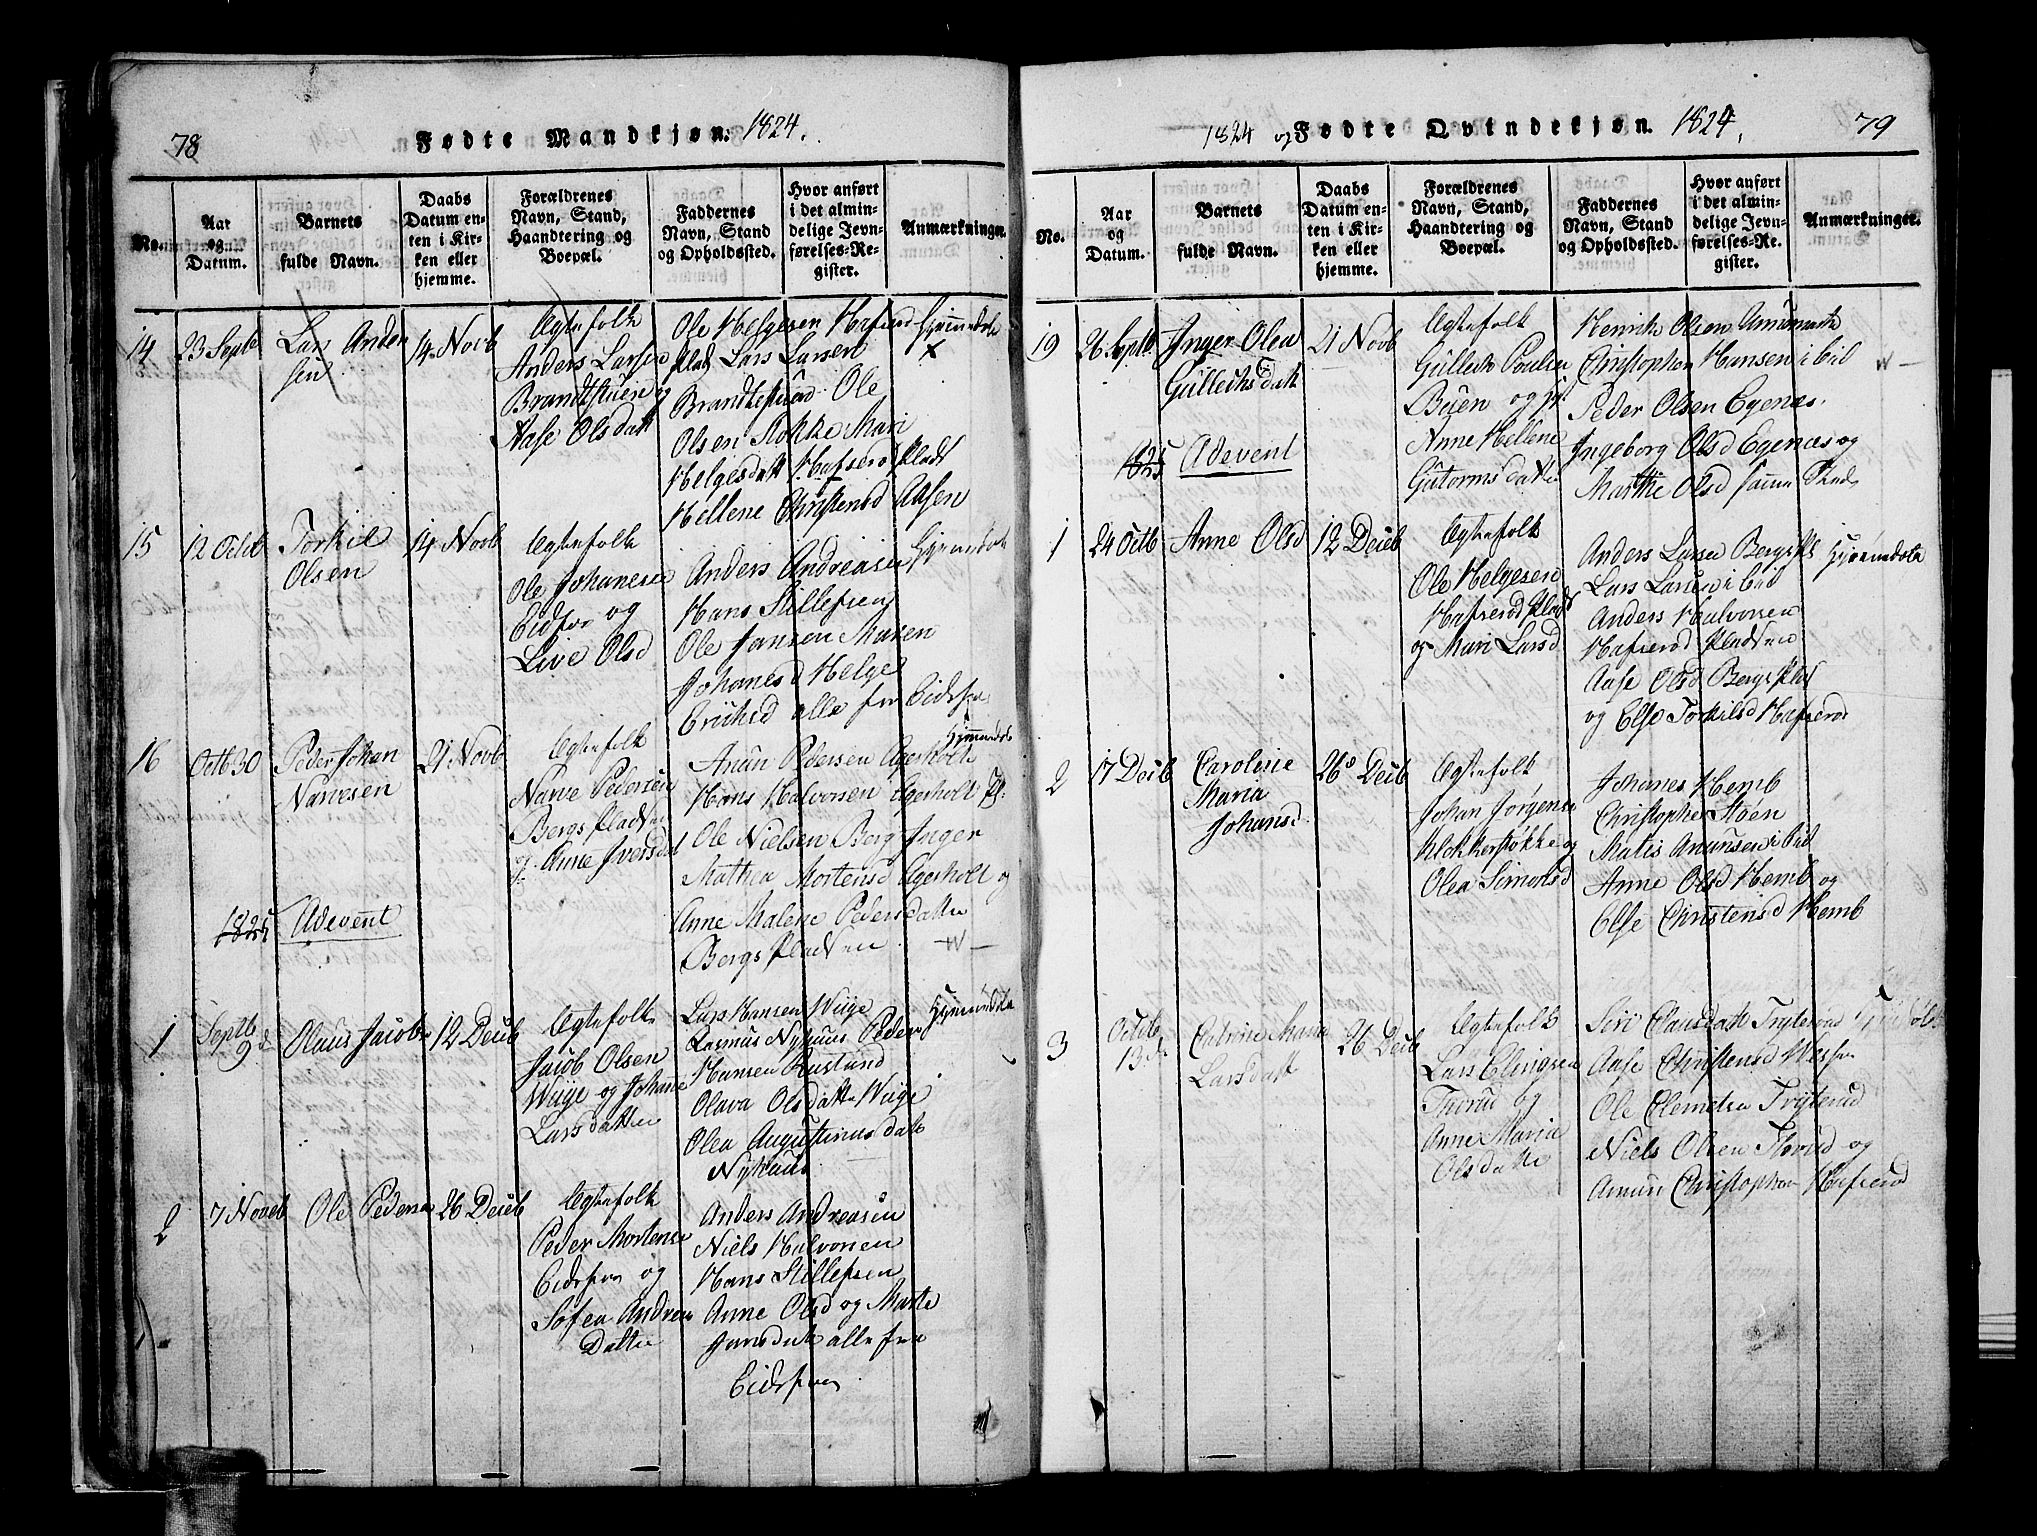 78
Fødte Mandkjøn. 1824.
No.
Aar og Datum.
Barnets fulde Navn.
Daabs Datum enten i Kirken eller hjemme.
Forældrenes Navn, Stand, Haandtering og Boepæl.
Faddernes Navn, Stand og Opholdssted.
Hvor anført i det almindelige Jevnførelses-Register.
Anmærkninger.
14
23 Septb
Lars Andersen
14 Novb
Ægtefolk
Anders Larsen
og
Aase Olsdatt
Ole Helgesen
Lars Larsen
Ole
Olsen Stokke Mari
Helgesdatt
Hellene Christensd Aasen
Hjemdøbt
15
12 Octb
Torkil
Olsen
14 Novb
Ægtefolk
Ole Johanesen
Eidsfos og
Live Olsd
Anders Andreasen
Hans Stillefsen
Ole Jansen Maren
Johanesd Helge
Erichsd alle fra Eidsfos
Hjemdøbt
16
Octb 30
Peder Johan
Narvesen
21 Novb
Ægtefolk
Narve Pedersen
Bergs Pladsen
og Anne Iversdat
Amun Pedersen Agerholt
Hans Halvorsen Agerholt Pl.
Ole Nielsen Berg Inger
Mathea Mortensd Agerholt og
Anne Malene Pedersdatter
Bergs Pladsen
1825
Adevent
1
Septb
9d
Olaus Jacobs
12 Decb
Ægtefolk
Jacob Olsen
Wiige og Johane
Larsdatter
Lars Hansen Wiige
Rasmus Nyhuus Peder
Hansen Rustand
Olava Olsdatter Wiige
Olea Augustinusdatt
Nyhuus
2
7 Noveb
Ole Pedersen
26 Decb
Ægtefolk
Peder Mortensen
Eidsfos og
Sofea Andrea
Datter
Anders Andreasen
Niels Halvorsen
Hans Stillefsen
Anne Olsd og Marte
Jansdatt alle fra
Eidsfos
1824 og Fødte Qvindekjøn. 1824.
79
No.
Aar og Datum.
Barnets fulde Navn.
Daabs Datum enten i Kirken eller hjemme.
Forældrenes Navn, Stand, Haandtering og Boepæl.
Faddernes Navn, Stand og Opholdssted.
Hvor anført i det almindelige Jevnførelses-Register.
Anmærkninger.
19
26 Septb
Inger Olea
Gullechsdatt
21 Novb
Ægtefolk
Gullech Poulsen
Buen og
Anne Hellene
Gutormsdatter
Henrich Olsen
Christopher Hansen ibid
Peder Olsen Egenæs
Ingeborg Olsd Egenæs og
Marthe Olsd samme Sted
1825
Adevent
1
24 Octb
Anne Olsd
12 Decb
Ægtefolk
Ole Helgesen
Hafserød Plads
og Mari Larsd
Anders Larsen Bergs Pl
Lars Larsen ibid
Anders Halvorsen
Hafserød Pladsen
Aase Olsd Bergs Plads
og Else Torkilsd Hafserød
Hjemdøbt
2
17 Decb
Caroline
Maria
Johansd
26 Decb
Ægtefolk
Johan Jørgensen
Klokkerstøkke og
Olea Simonsd
Johanes Hemb
Christopher Støen
Matis Amunsen ibid
Anne Olsd Hemb og
Else Christensd Hemb
3
Octb
13d
Catrine Maria
Larsdatt
26 Decb
Ægtefolk
Lars Elingsen
Thorud og
Anne Maria
Olsdatter
Siri Clausdatt Tryterud
Aase Christensd
Ole Clemetsen Tryterud
Niels Olsen Thorud og
Amun Christophersen Hafserød